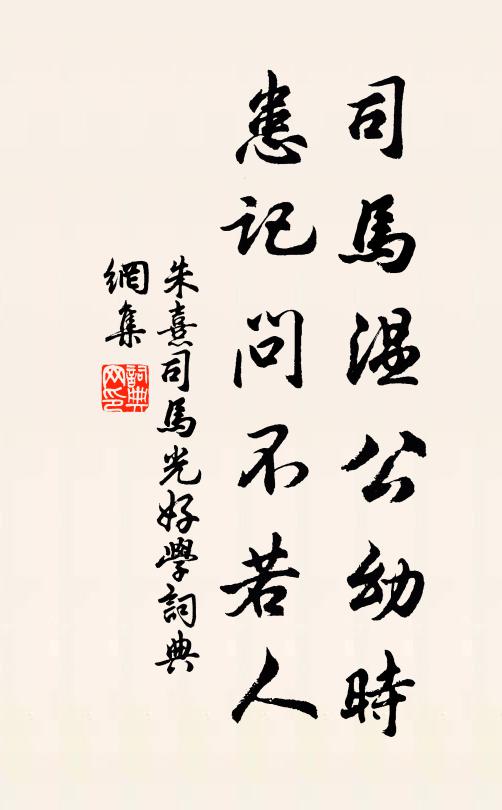 司馬温公幼時
患記問不若人
朱熹司馬光好學詞典
網集
詞典
网印